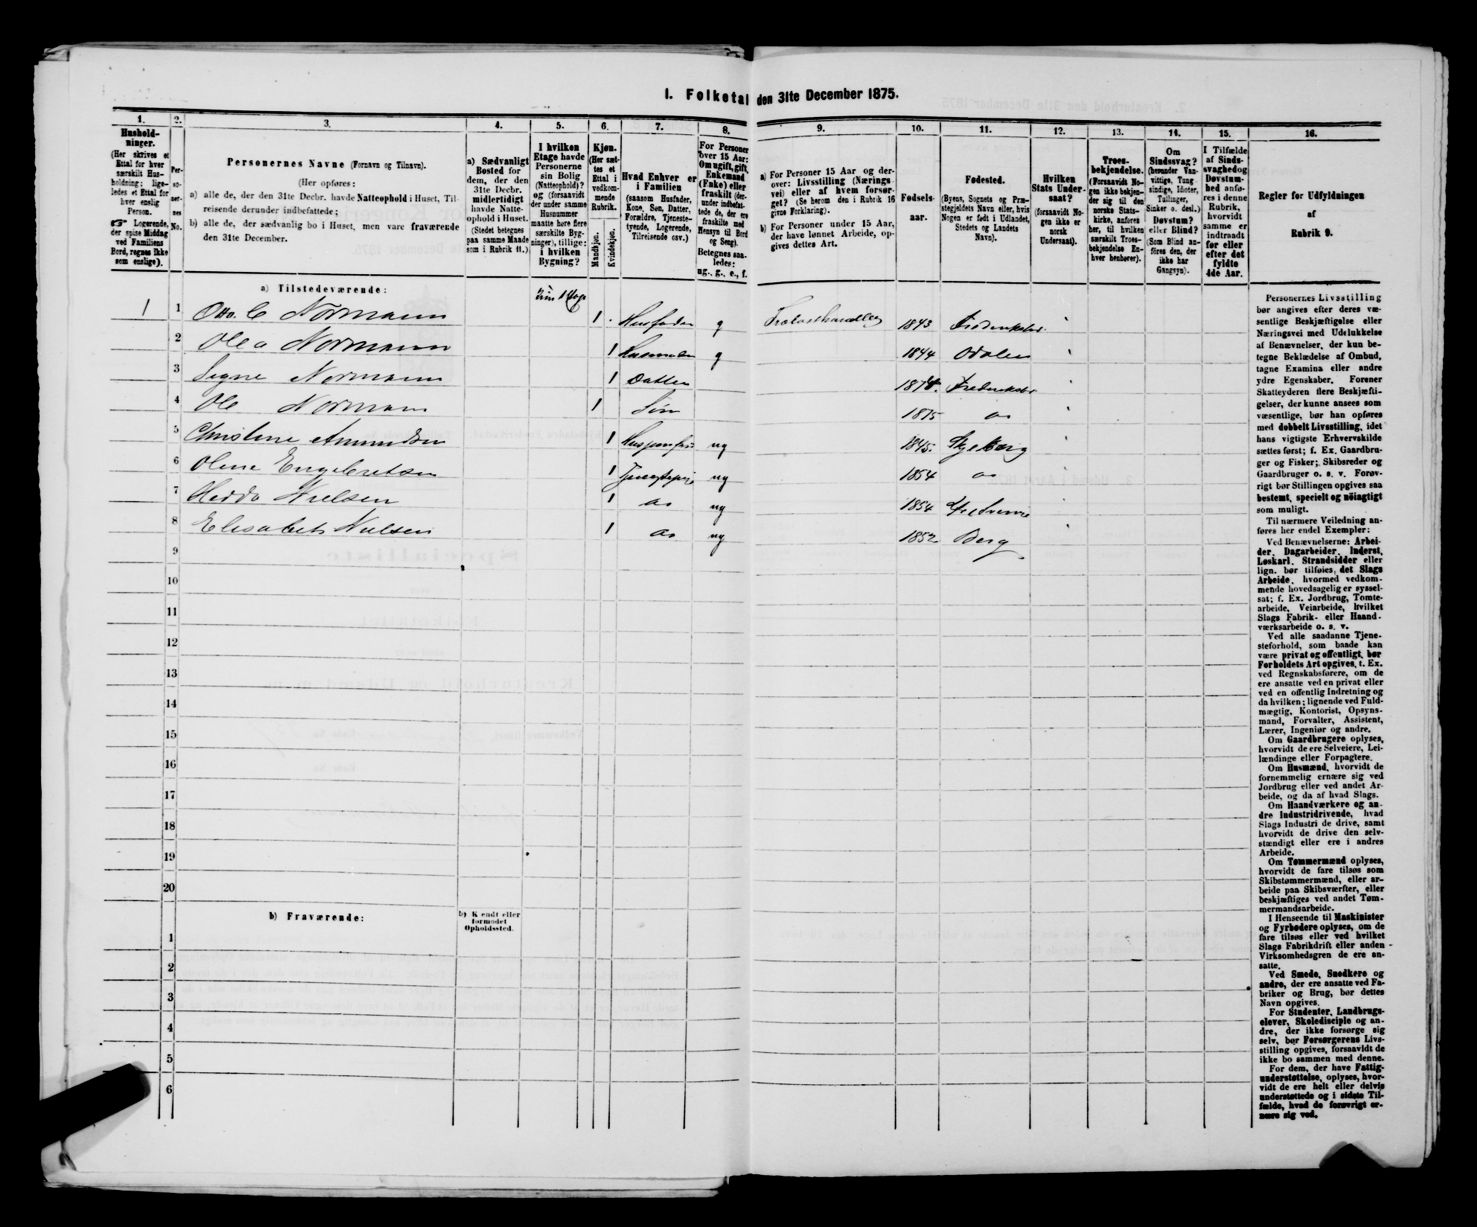 I. Folketal den 31te December 1875.
1. 2. 3. 4. 5. 6. 7. 8. 9. 10. 11. 12. 13. 14. 15. 16.
Hushold-
ninger.
(Her skrives et
Ettal for hver
særskilt Hus-
holdning; lige-
ledes et Ettal for
hver enslig
Person.
☞ Logerende,
der spise Middag
ved Familiens
Bord, regnes ikke
som enslige).
Per-
so-
ner-
nes
No.
Personernes Navne (Fornavn og Tilnavn).
(Her opføres:
a) alle de, der den 31te Decbr. havde Natteophold i Huset, Til-
reisende derunder indbefattede;
b) alle de, der sædvanlig bo i Huset, men vare fraværende
den 31te December.
a) Sædvanligt
Bosted for
dem, der den
31te Decbr.
midlertidigt
havde Natte-
ophold i Huset.
(Stedet betegnes
paa samme Maade
som i Rubrik 11.)
I hvilken
Etage havde
Personerne
sin Bolig
(Natteophold)?
og (forsaavidt
der under samme
Husnummer
maatte høre flere
særskilte Byg-
ninger), tillige:
i hvilken
Bygning?
Kjøn.
(Her sæt-
tes et
Ettal i
vedkom-
mende
Rubrik.
Mandkjøn.
Kvindekjøn.
Hvad Enhver er
i Familien
(saasom Husfader,
Kone, Søn, Datter,
Forældre, Tjeneste-
tyende, Logerende,
Tilreisende osv.)
For Personer
over 15 Aar:
Om ugift, gift,
Enkemand
(Enke) eller
fraskilt (der-
under indbefat-
tede de, der ere
fraskilte med
Hensyn til Bord
og Seng).
Betegnes saa-
ledes:
ug., g., e., f.
a) For Personer 15 Aar og der-
over: Livsstilling (Nærings
vei) eller af hvem forsør-
get? (Se herom den i Rubrik 16
givne Forklaring).
b) For Personer under 15 Aar,
der have lønnet Arbeide, op-
gives dettes Art.
Fødsels-
aar.
Fødested.
(Byens, Sognets og Præ-
stegjeldets Navn eller, hvis
Nogen er født i Udlandet,
Stedets og Landets
Navn).
Hvilken
Stats Under-
saat?
(forsaavidt No-
gen ikke er
norsk
Undersaat).
Troes-
bekjendelse.
(Forsaavidt No-
gen ikke bekjen-
der sig til den
norske Stats-
kirke, anføres
her, til hvilken
særskilt Troes-
bekjendelse En-
hver henhører).
Om
Sindssvag?
(herunder Van-
vittige, Tung
sindige, Idioter,
Tullinger,
Sinker o. desl.)
Døvstum?
eller Blind?
(Som Blind an-
føres den, der
ikke har
Gangsyn).
I Tilfælde
af Sinds-
svaghed og
Døvstum-
hed anfø-
res i denne
Rubrik,
hvorvidt
samme er
indtraadt
før eller
efter det
fyldte
4de Aar.
Regler for Udfyldningen
af
Rubrik 9.
a) Tilstedeværende:
1 1 Otto C Normann 1 Husfader g Trælasthandler 1843
2 Olea Normann 1 Husmoder g 1844 Odalen
3 Signe Normann 1 Datter 1874.
4 Ole Normann 1 Søn 1875 do
5 Christine Amundsen 1 ug 1845. Skjeberg
6 Oline Engebretsen 1 ug 1854 do
7 Hedda Nielsen 1 do ug 1854
8 Elisabeth Nielsen 1 do ug 1852 Berg
9
10
11
12
13
14
15
16
17
18
19
20
b) Fraværende:
b) Kjendt eller
formodet
Opholdssted.
1
2
3
4
5
6
Personernes Livsstilling
bør angives efter deres væ-
sentlige Beskjæftigelse eller
Næringsvei med Udelukkelse
af Benævnelser, der kun be-
tegne Beklædelse af Ombud,
tagne Examina eller andre
ydre Egenskaber. Forener
Skatteyderen flere Beskjæfti-
gelser, der kunne ansees som
væsentlige, bør han opføres
med dobbelt Livsstilling, idet
hans vigtigste Erhvervskilde
sættes først; f. Ex. Gaardbru-
ger og Fisker; Skibsreder og
Gaardbruger o. s. v. Forøv-
rigt bør Stillingen opgives saa
bestemt, specielt og nøiagtigt
som muligt.
Til nærmere Veiledning an-
føres her endel Exempler:
Ved Benævnelserne: Arbei-
der, Dagarbeider, Inderst,
Løskarl, Strandsidder eller
lign. bør tilføies, det Slags
Arbeide, hvormed vedkom-
mende hovedsagelig er syssel-
sat; f. Ex. Jordbrug, Tomte-
arbeide, Veiarbeide, hvilket
Slags Fabrik- eller Haand-
værksarbeide o. s. v.
Ved alle saadanne Tjene-
steforhold, som baade kan
være privat og offentligt, bør
Forholdets Art opgives, t. Ex.
ved Regnskabsførere, om de
ere ansatte ved en privat eller
ved en offentlig Indretning og
da hvilken; lignende ved Fuld-
mægtig, Kontorist, Opsyns-
mand, Forvalter, Assistent,
Lærer, Ingeniør og andre.
Om Gaardbrugere oplyses,
hvorvidt de ere Selveiere, Lei-
lændinge eller Forpagtere.
Om Husmænd, hvorvidt de
fornemmelig ernære sig ved
Jordbrug eller ved andet Ar-
beide, og da af hvad Slags.
Om Haandværkere og an-
dre Industridrivende, hvad
Slags Industri de drive, samt
hvorvidt de drive den selv-
stændigt eller ere i andres
Arbeide.
Om Tømmermænd oplyses,
hvorvidt de fare tilsøs som
Skibstømmermænd, eller ar-
beide paa Skibsværfter, eller
beskjæftiges ved andet Tøm-
mermandsarbeide.
I Henseende til Maskinister
og Fyrbødere oplyses, om de
fare tilsøs eller ved hvilket
Slags Fabrikdrift eller anden
Virksomhedsgren de ere an-
satte.
Ved Smede, Snedkere og
andre, der ere ansatte ved Fa-
briker og Brug, bør dettes
Navn opgives.
For Studenter, Landbrugs-
elever, Skoledisciple og an-
dre, der ikke forsørge sig
selv, bør Forsørgerens Livs-
stilling opgives, forsaavidt de
ikke bo sammen med denne.
For dem, der have Fattig-
understøttelse, oplyses, hvor-
vidt de ere helt eller delvis
understøttede og i sidste Til-
fælde, hvad de forøvrigt er-
nære sig ved.